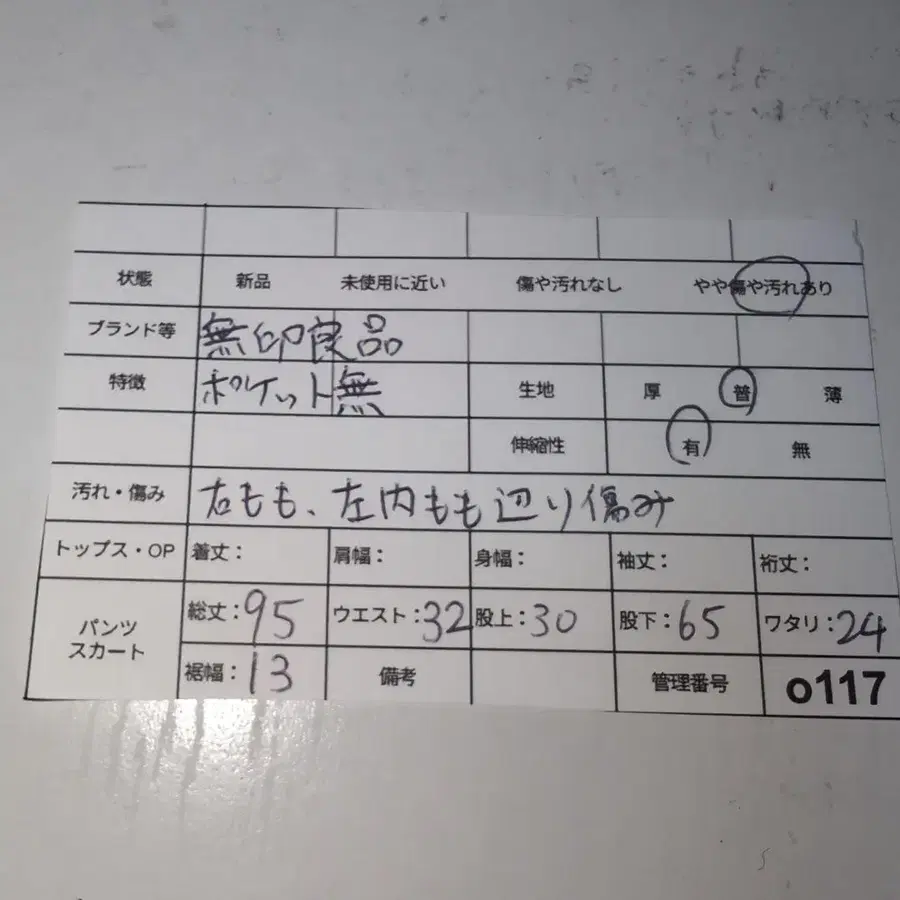 状態 新品 未使用に近い 傷や汚れなし やや傷や汚れあり
ブランド等 無印良品
特徴 ポケット無 生地 厚 普 薄
伸縮性 有 無
汚れ・傷み 右もも、左内もも辺り傷み
トップス・OP 着丈: 肩幅: 身幅: 袖丈: 裄丈:
パンツ スカート 総丈:95 ウエスト:32 股上:30 股下:65 ワタリ:24
裾幅:13 備考 管理番号 o117